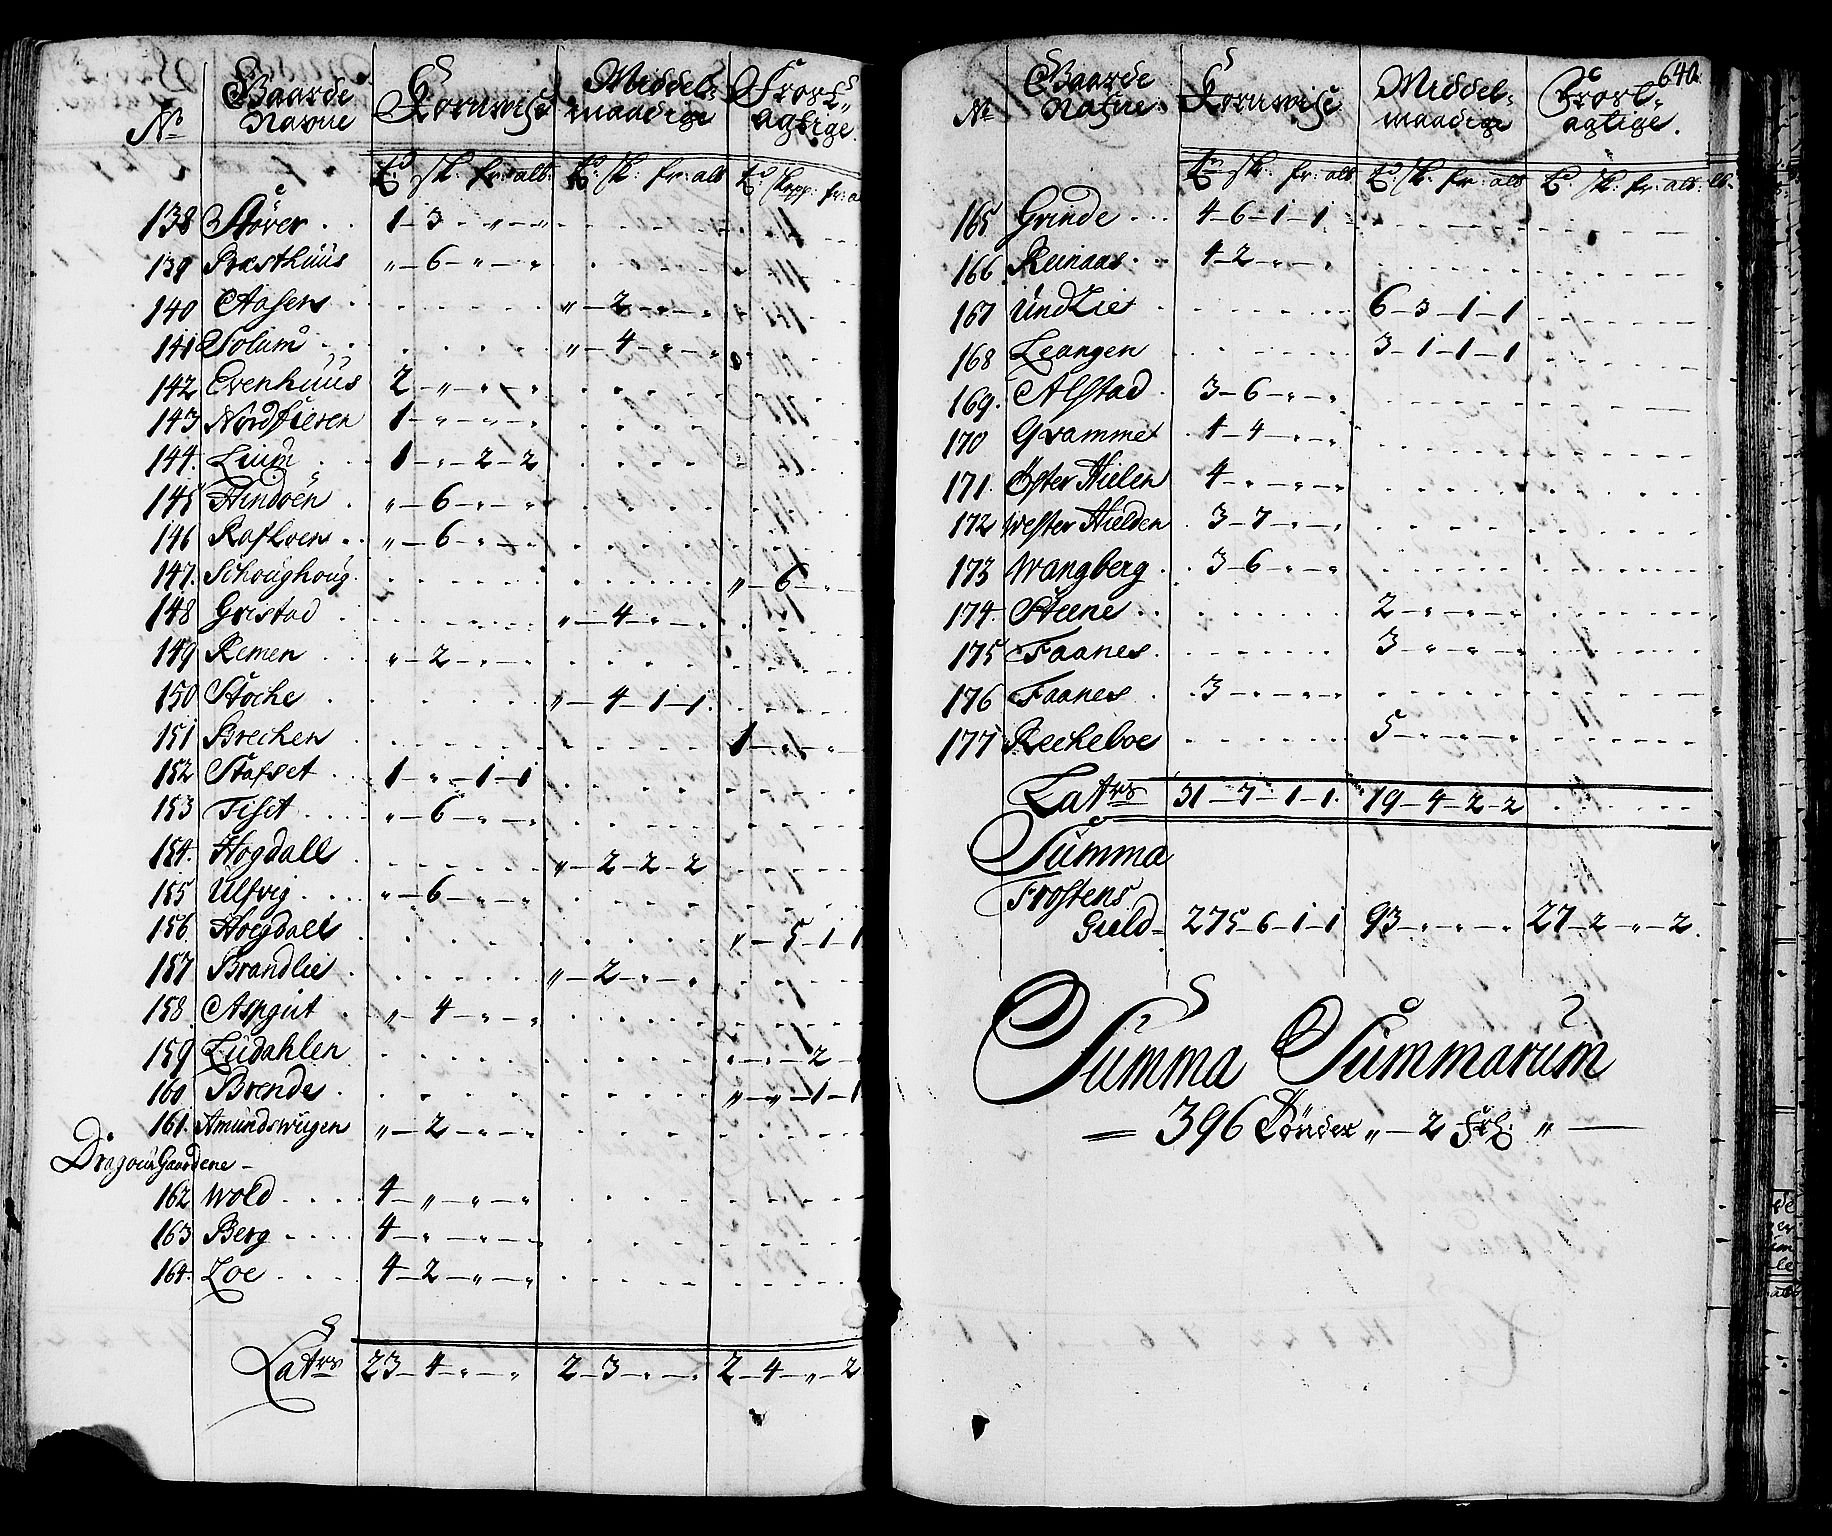 No Gaarde Navne Kornvise Middel-maadige Frost-agtige.
td sk: fr: alb: td: sk: fr: alb td: skpp: fr: a
138 Støver . . 1 - 3 - „ - „
139 Præsthuus „ - 6 - „ - „
140 Aasen „ - 2 - „ - „
141 Solum „ - 4 - „ - „
142 Evenhuus 2 - „ - „ - „
143 Nordfieren 1 - „ - „ - „
144. Luum 1 - „ - 2 - 2
145 Hindöen „ - 6 - „ - „
146 Rafloen „ - 6 - „ - „
147. Schoughoug. „ - 6 - „
148 Gristad „ - 4 - „ - „
149 Remen „ - 2 - „ - „
150 Stoche „ - 4 - 1 - 1
151 Brechen 1 - „ - „
152 Stafset 1 - „ - 1 - 1
153 Tiset „ - 6 - „ - „
154. Hogdall „ - 2 - 2 - 2
155 Ulfvig „ - 6 - „ - „
156. Hoegdall „ - 5 - 1 - 1
157 Brandlie „ - 2 - „ - „
158. Aspgut „ - 4 - „ - „
159 Ludahlen „ - „ - 2 -
160 Brende „ - „ - 1 - 1
161. Amundswigen „ - 2 - „ - „
Dragoun Gaardene -
162 Wold 4 - „ - „ - „
163 Berg 4 - „ - „ - „
164. Loe 4 - 2 - „ - „
Latrs 23 - 4 - „ - „ 2 - 3 - „ - „ 2 - 4 - „ - 2
640.
No Gaarde Nafne Kornvise Middel-maadige Frost-agtige.
tr sk: fr: alb td sk: fr: alb td: sk: fr: alb:
165 Grinde 4 - 6 - 1 - 1
166 Reinaas 4 - 2 - „ - „
167 Undlie 6 - 3 - 1 - 1
168 Leangen 3 - 1 - 1 - 1
169. Alstad 3 - 6 - „ - „
170 Gvamme 4 - 4 - „ - „
171. Öster Hielen 4 - „ - „ - „
172 Wester Hielden 3 - 7 - „ - „
173 Wangberg 3 - 6 - „ - „
174. Steene 2 - „ - „ - „
175 Faanes. 3 - „ - „ - „
176 Faanes 3 - „ - „ - „
177 Reckeboe 5 - „ - „ - „
Latrs 31 - 7 - 1 - 1. 19 - 4 - 2 - 2
Summa
Frostens
Gield - 275 - 6 - 1 - 1 93 - „ - „ - „ 27 - 2 - „ - 2.
Summa Summarum
= 396 Tönder „ - 2 Frh: „ —